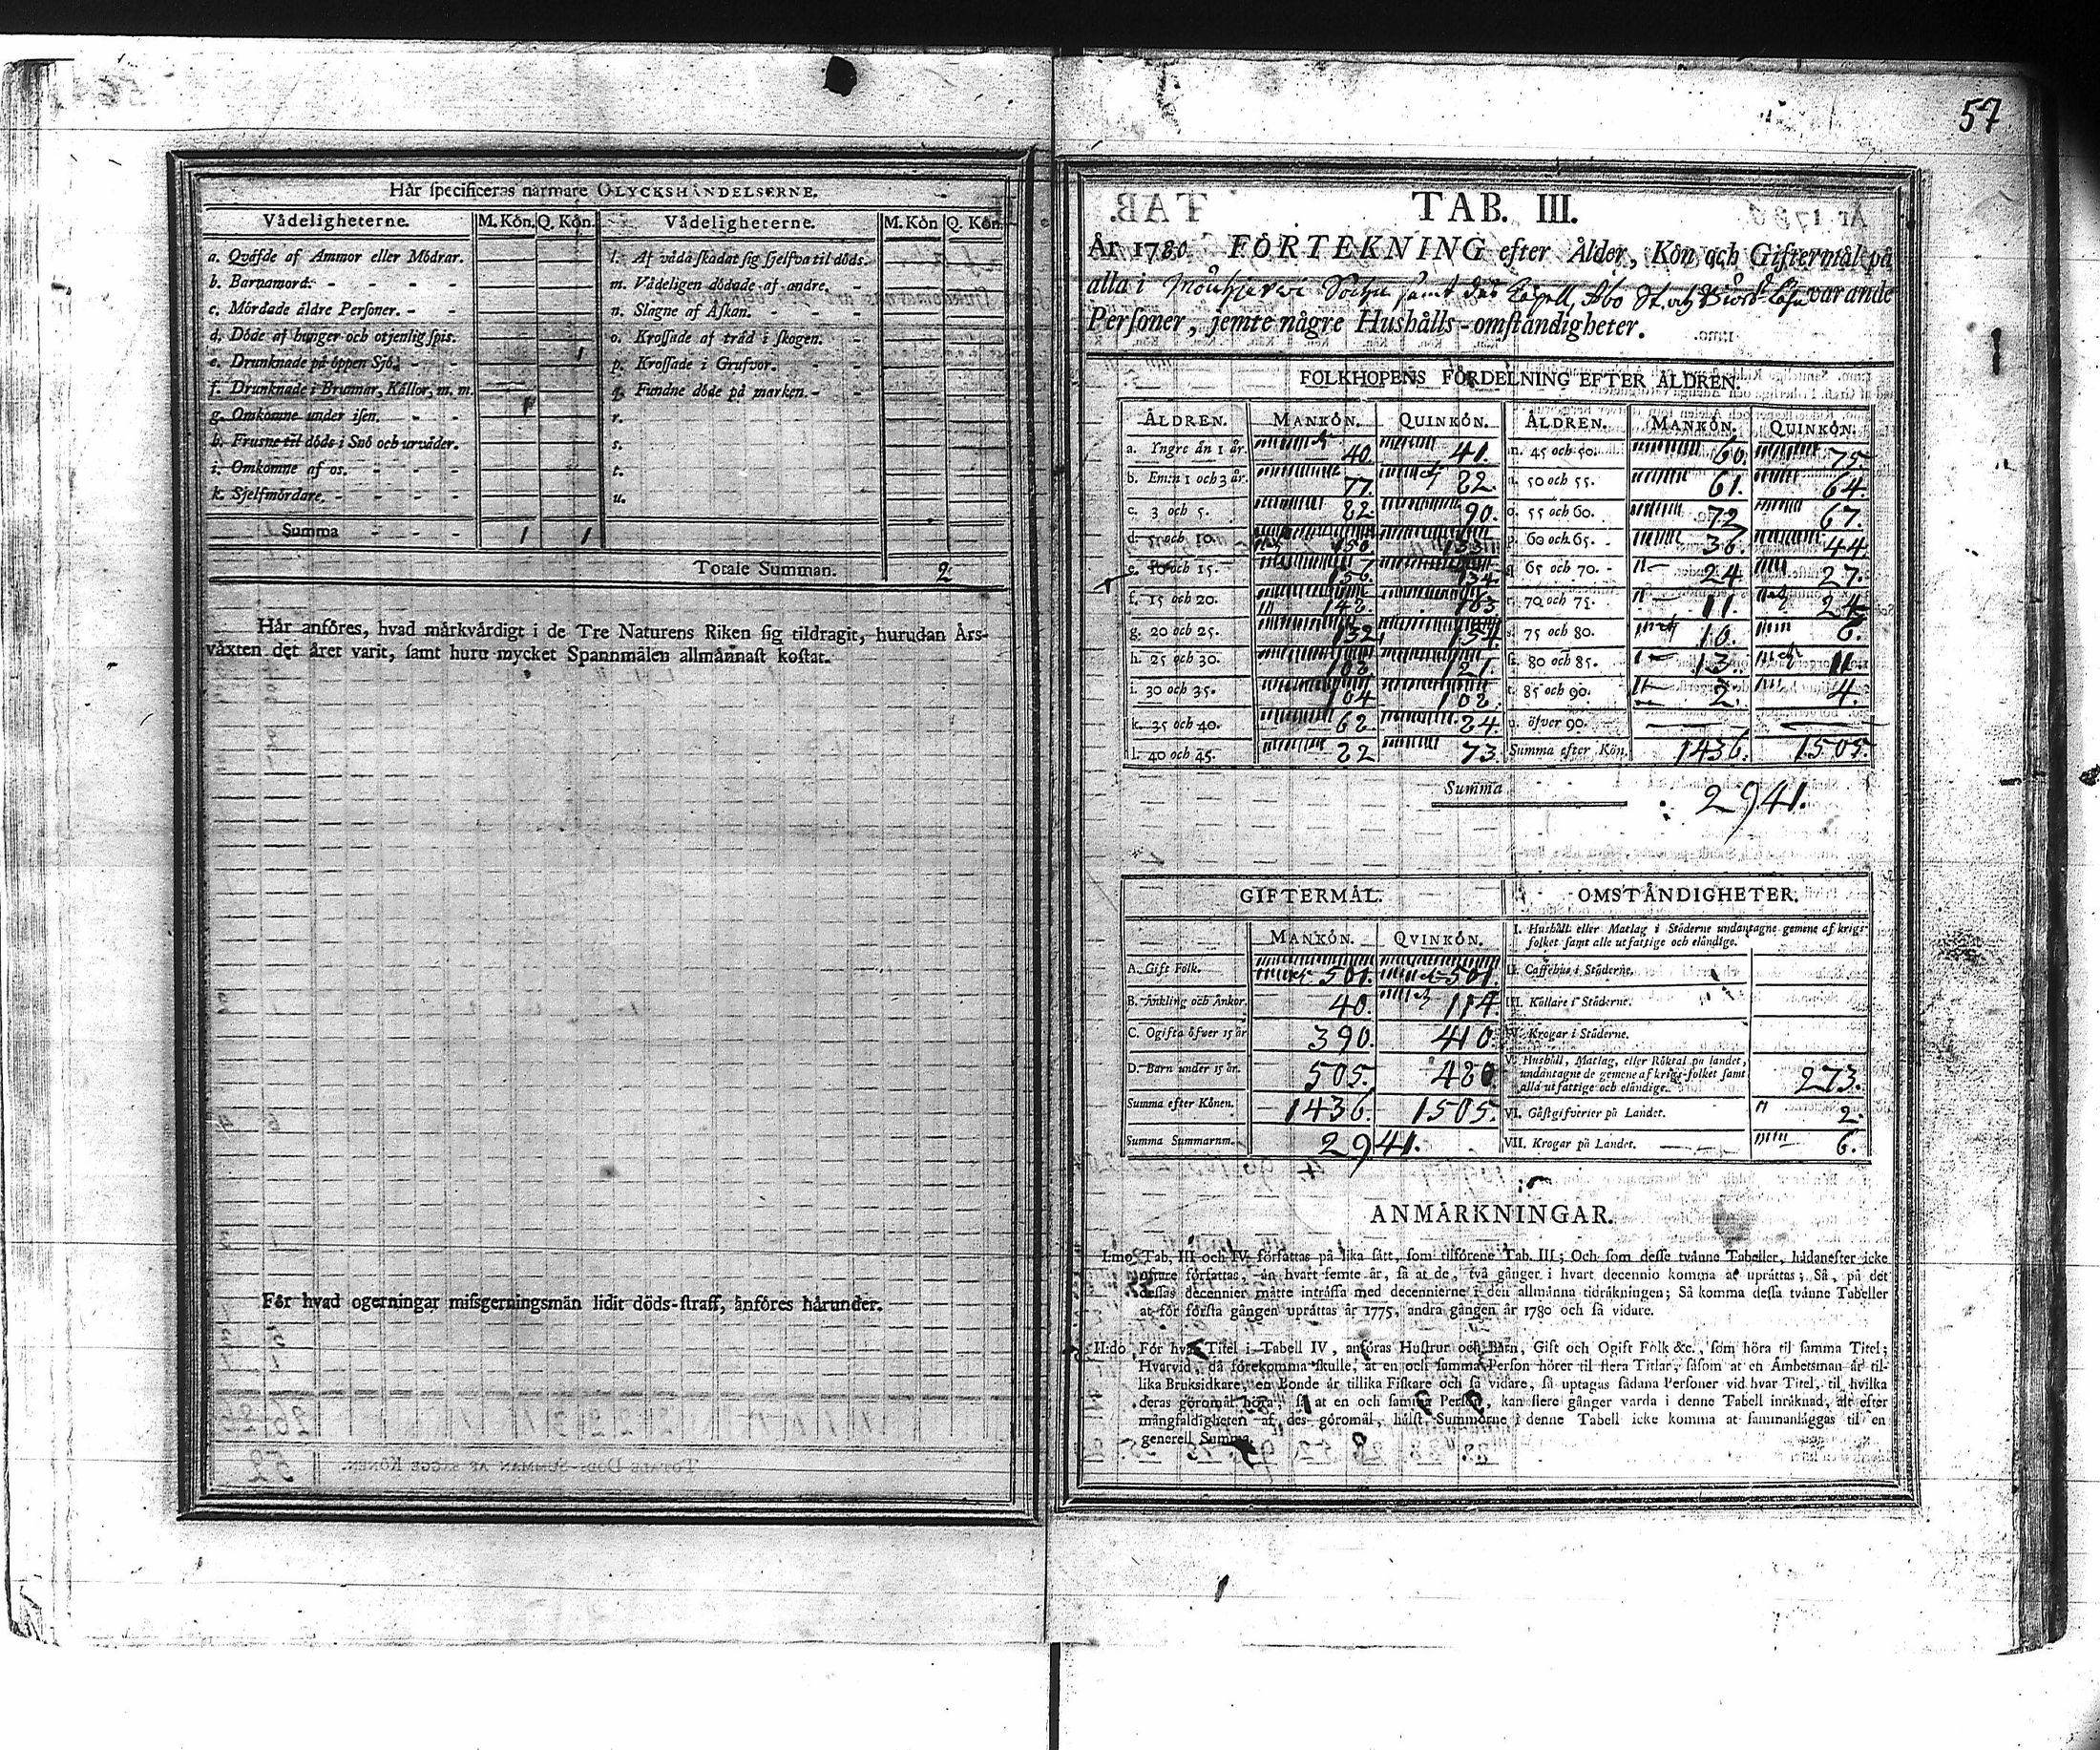 57
Här ſpecificeras närmare OLYCKSHÄNDELSERNE.
Vådeligheterne. M. Kön. Q. Kön. Vådeligheterne. M. Kön Q. Kön
a. Qväfde af Ammor eller Mödrar. l. Af våda ſkadat ſig ſjelfva til döds.
b. Barnamord. - - - - m. Vådeligen dödade af andre. -
c. Mördade äldre Perſoner. - - n. Slagne af Åſkan. - - -
d. Döde af hunger och otjenlig ſpis. o. Kroſſade af träd i ſkogen. -
e. Drunknade på öppen Sjö. - - 1 p. Kroſſade i Grufvor. - -
f. Drunknade i Brunnar, Källor, m. m. q. Fundne döde på marken. - -
g. Omkomne under iſen. - - 1 r.
h. Fruſne til döds i Snö och urväder. s.
i. Omkomne af os. - - - t.
k. Sjelfmördare. - - - u.
Summa - - - 1 1
Totale Summan. 2
Här anföres, hvad märkvärdigt i de Tre Naturens Riken ſig tildragit, hurudan Års-
växten det året varit, ſamt huru mycket Spannmålen allmännaſt koſtat.
För hvad ogerningar miſsgerningsmän lidit döds-ſtraff, anföres härunder.
TAB. III.
År 1780. FÖRTEKNING efter Ålder, Kön och Giftermål på
alla i Mouhijervi Sochn samt des Capell, Åbo varande
Perſoner, jemte några Hushålls-omſtändigheter.
FOLKHOPENS FÖRDELNING EFTER ÅLDREN.
ÅLDREN. MANKÖN. QUINKÖN. ÅLDREN. MANKÖN. QUINKÖN.
a. Yngre än 1 år. 40. 41. m. 45 och 50. 60. 75.
b. Em:n 1 och 3 år. 77. 82. n. 50 och 55. 61. 64.
c. 3 och 5. 82. 90. o. 55 och 60. 72 67.
d. 5 och 10. 150. 133 p. 60 och 65. 36. 44.
e. 10 och 15. 156. 134. q. 65 och 70. 24 27.
f. 15 och 20. 148. 163 r. 70 och 75. 11. 24
g. 20 och 25. 132. 154. s. 75 och 80. 16. 6.
h. 25 och 30. 108. 121. 80 och 85. 13. 11.
i. 30 och 35. 104 108. t. 85 och 90. 2. 4.
k. 35 och 40. 62. 84. u. öfver 90.
l. 40 och 45. 82 73. Summa efter Kön. 1436. 1505.
Summa : 2941.
GIFTERMÅL. OMSTÄNDIGHETER.
MANKÖN. QVINKÖN. I. Hushåll eller Matlag i Städerne undantagne gemene af krigs-
folket ſamt alle utfattige och eländige.
A. Gift Folk. 501. 501. II. Caffehus i Städerne.
B. Änkling och Änkor. 40. 114. III. Källare i Städerne.
C. Ogifta öfver 15 år 390. 410. IV. Krogar i Städerne.
D. Barn under 15 år. 505. 480. V. Hushåll, Matlag, eller Röktal på landet,
undantagne de gemene af krigs-folket ſamt
alla utfattige och eländige. 273.
Summa efter Könen. 1436. 1505. VI. Gäſtgifverier på Landet. 2.
Summa Summarum. 2941. VII. Krogar på Landet. 6.
ANMÄRKNINGAR.
I:mo Tab. III och IV författas på lika ſätt, ſom tilförene Tab. III; Och ſom deſſe tvänne Tabeller, hädanefter icke
oftare författas, än hvart femte år, ſå at de, två gånger i hvart decennio komma at uprättas; Så, på det
deſſas decennier måtte inträffa med decennierne i den allmänna tidräkningen; Så komma deſſa tvänne Tabeller
at för förſta gången uprättas år 1775, andra gången år 1780 och ſå vidare.
II:do För hvar Titel i Tabell IV, anföras Huſtrur och Barn, Gift och Ogift Folk &c., ſom höra til ſamma Titel;
Hvarvid, då förekomma ſkulle, at en och ſamma Perſon hörer til flera Titlar, ſåſom at en Ämbetsman är til-
lika Bruksidkare, en Bonde är tillika Fiſkare och ſå vidare, ſå uptagas ſådana Perſoner vid hvar Titel, til hvilka
deras göromål höra, ſå at en och ſamma Perſon, kan flere gånger varda i denne Tabell inräknad, alt efter
mångfaldigheten af des göromål, hälſt Summorne i denne Tabell icke komma at ſammanläggas til en
generell Summa.